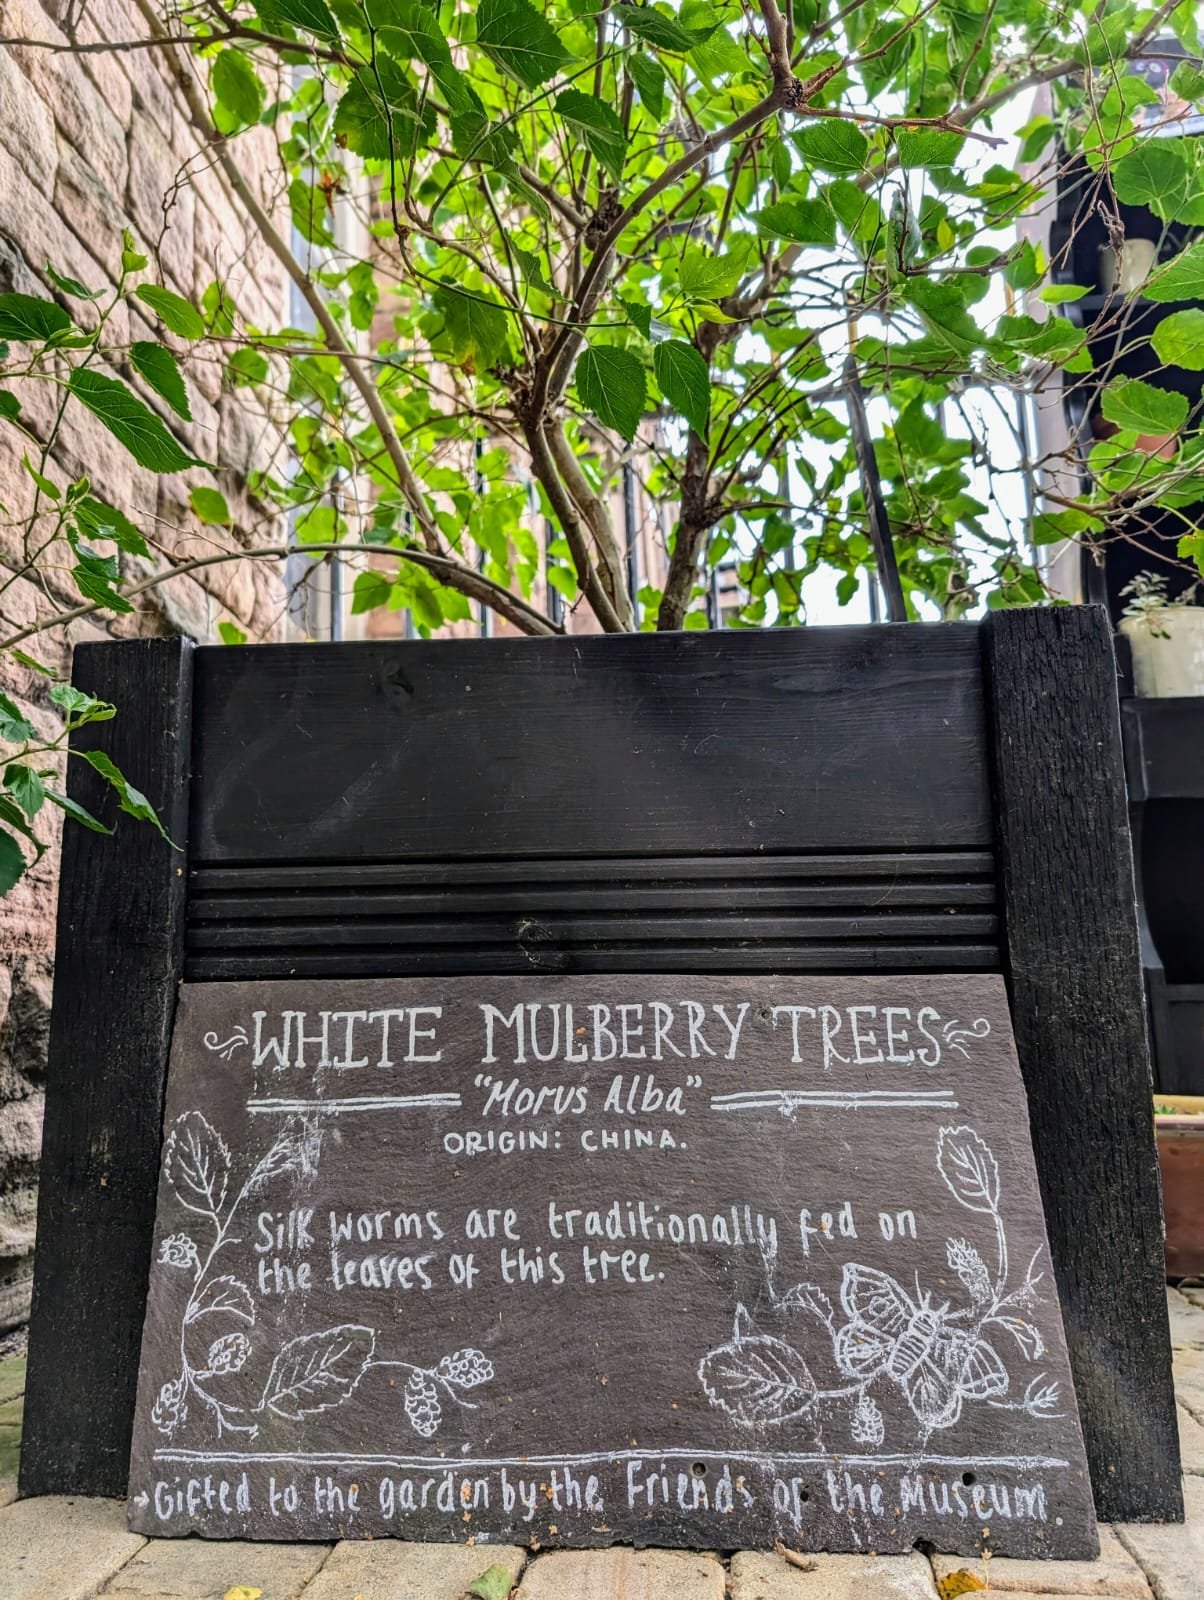 WHITE MULBERRY TREES
"Morus Alba"
ORIGIN: CHINA.
Silk worms are traditionally fed on
the leaves of this tree.
Gifted to the garden by the Friends of the Museum.